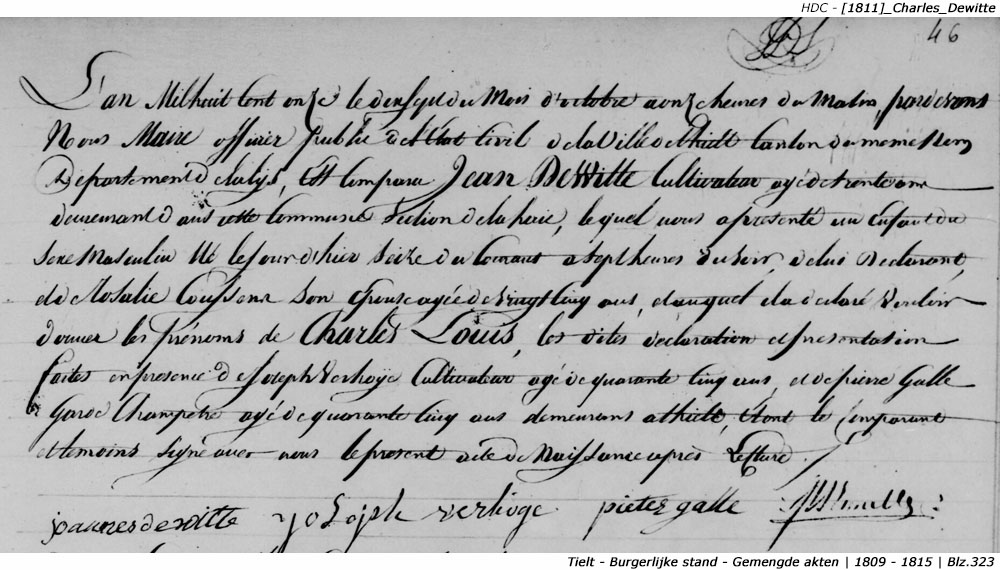 HDC - [1811]_Charles_Dewitte
46
L'an Mil huit cent onze le dix sept du Mois d'octobre a onze heures du Matin, pardevans
Nous Maire officier public de l'Etat Civil de la Ville de thielt Canton du meme Nom
Departement de la lys, Est Comparu Jean DeWitte Cultivateur agé de trente ans
demeurant dans cette Commune Section de la , lequel nous a presenté un Enfant du
Sexe Masculin Né le jour d'hier Seize du Courant a Sept heures du Soir, de lui Declarant,
et de Rosalie Coussens Son Epouse agée de vingt Cinq ans, et auquel il a declaré Vouloir
donner les prénoms de Charles Louis, les dites declaration et presentation
faites en presence de Joseph Verhoÿe Cultivateur agé de quarante Cinq ans, et de pierre Galle
Garde Champetre agé de quarante Cinq ans demeurans a thielt, et ont le Comparant
et temoins Signé avec nous le present acte de Naissance après Lecture.
joannes de witte yoseph verhoÿe pieter galle
Tielt - Burgerlijke stand - Gemengde akten | 1809 - 1815 | Blz.323